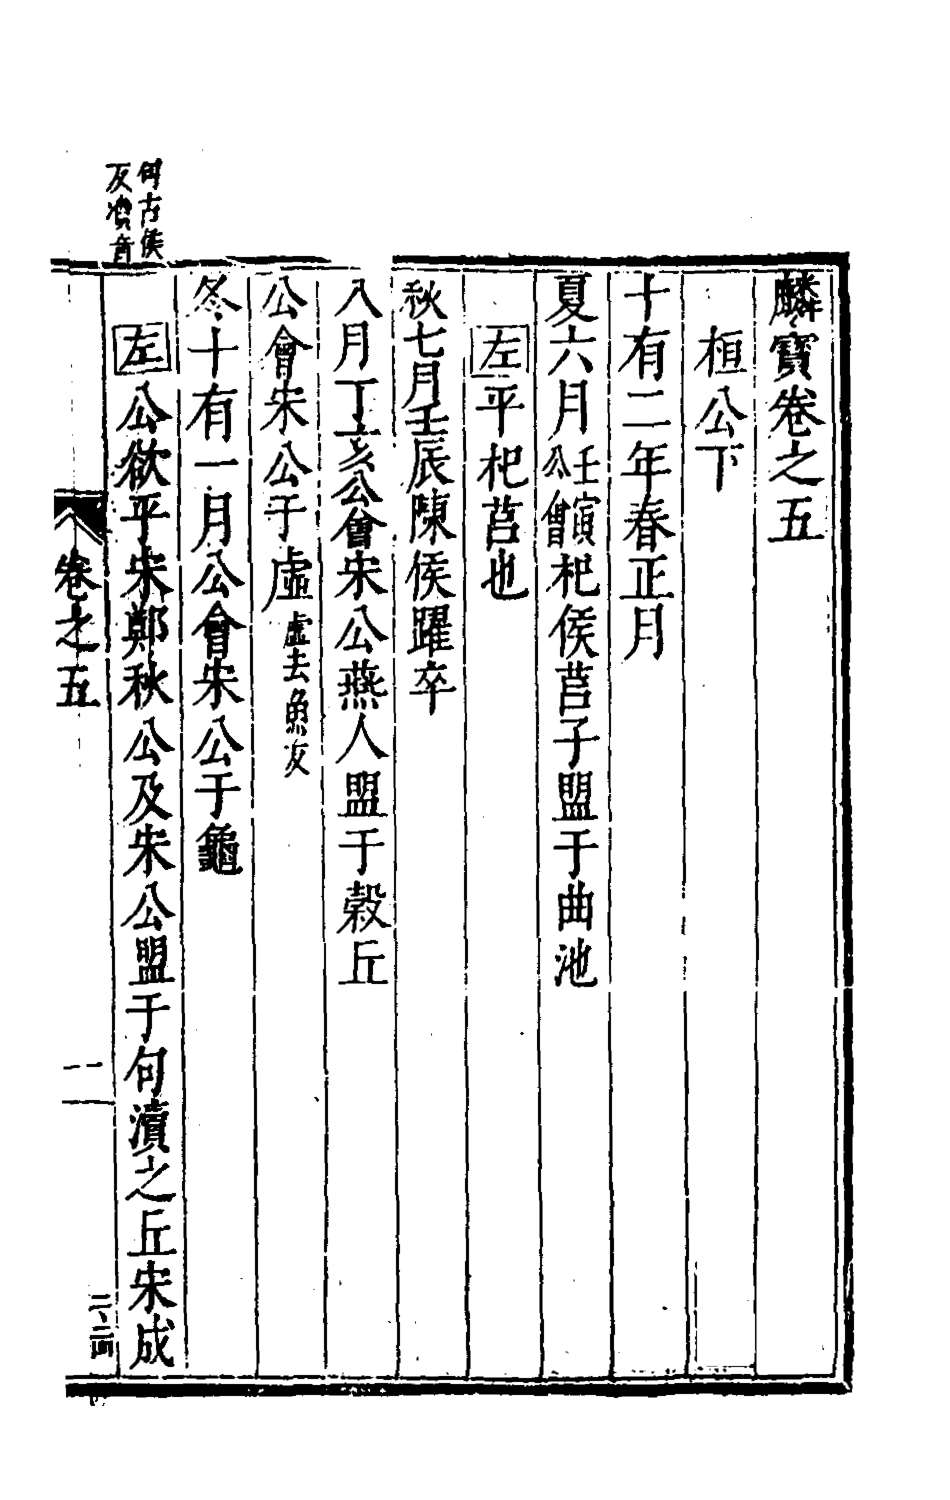 麟寶卷之五
桓公下
十有二年春正月
夏六月壬寅公會杞侯莒子盟于曲池
左平杞莒也
秋七月壬辰陳侯躍卒
八月丁亥公會宋公燕人盟于穀丘
公會宋公于虛虛去魚反
冬十有一月公會宋公于龜
左公欲平宋鄭秋公及宋公盟于句瀆之丘宋成
句古侯
反瀆音
卷之五
一